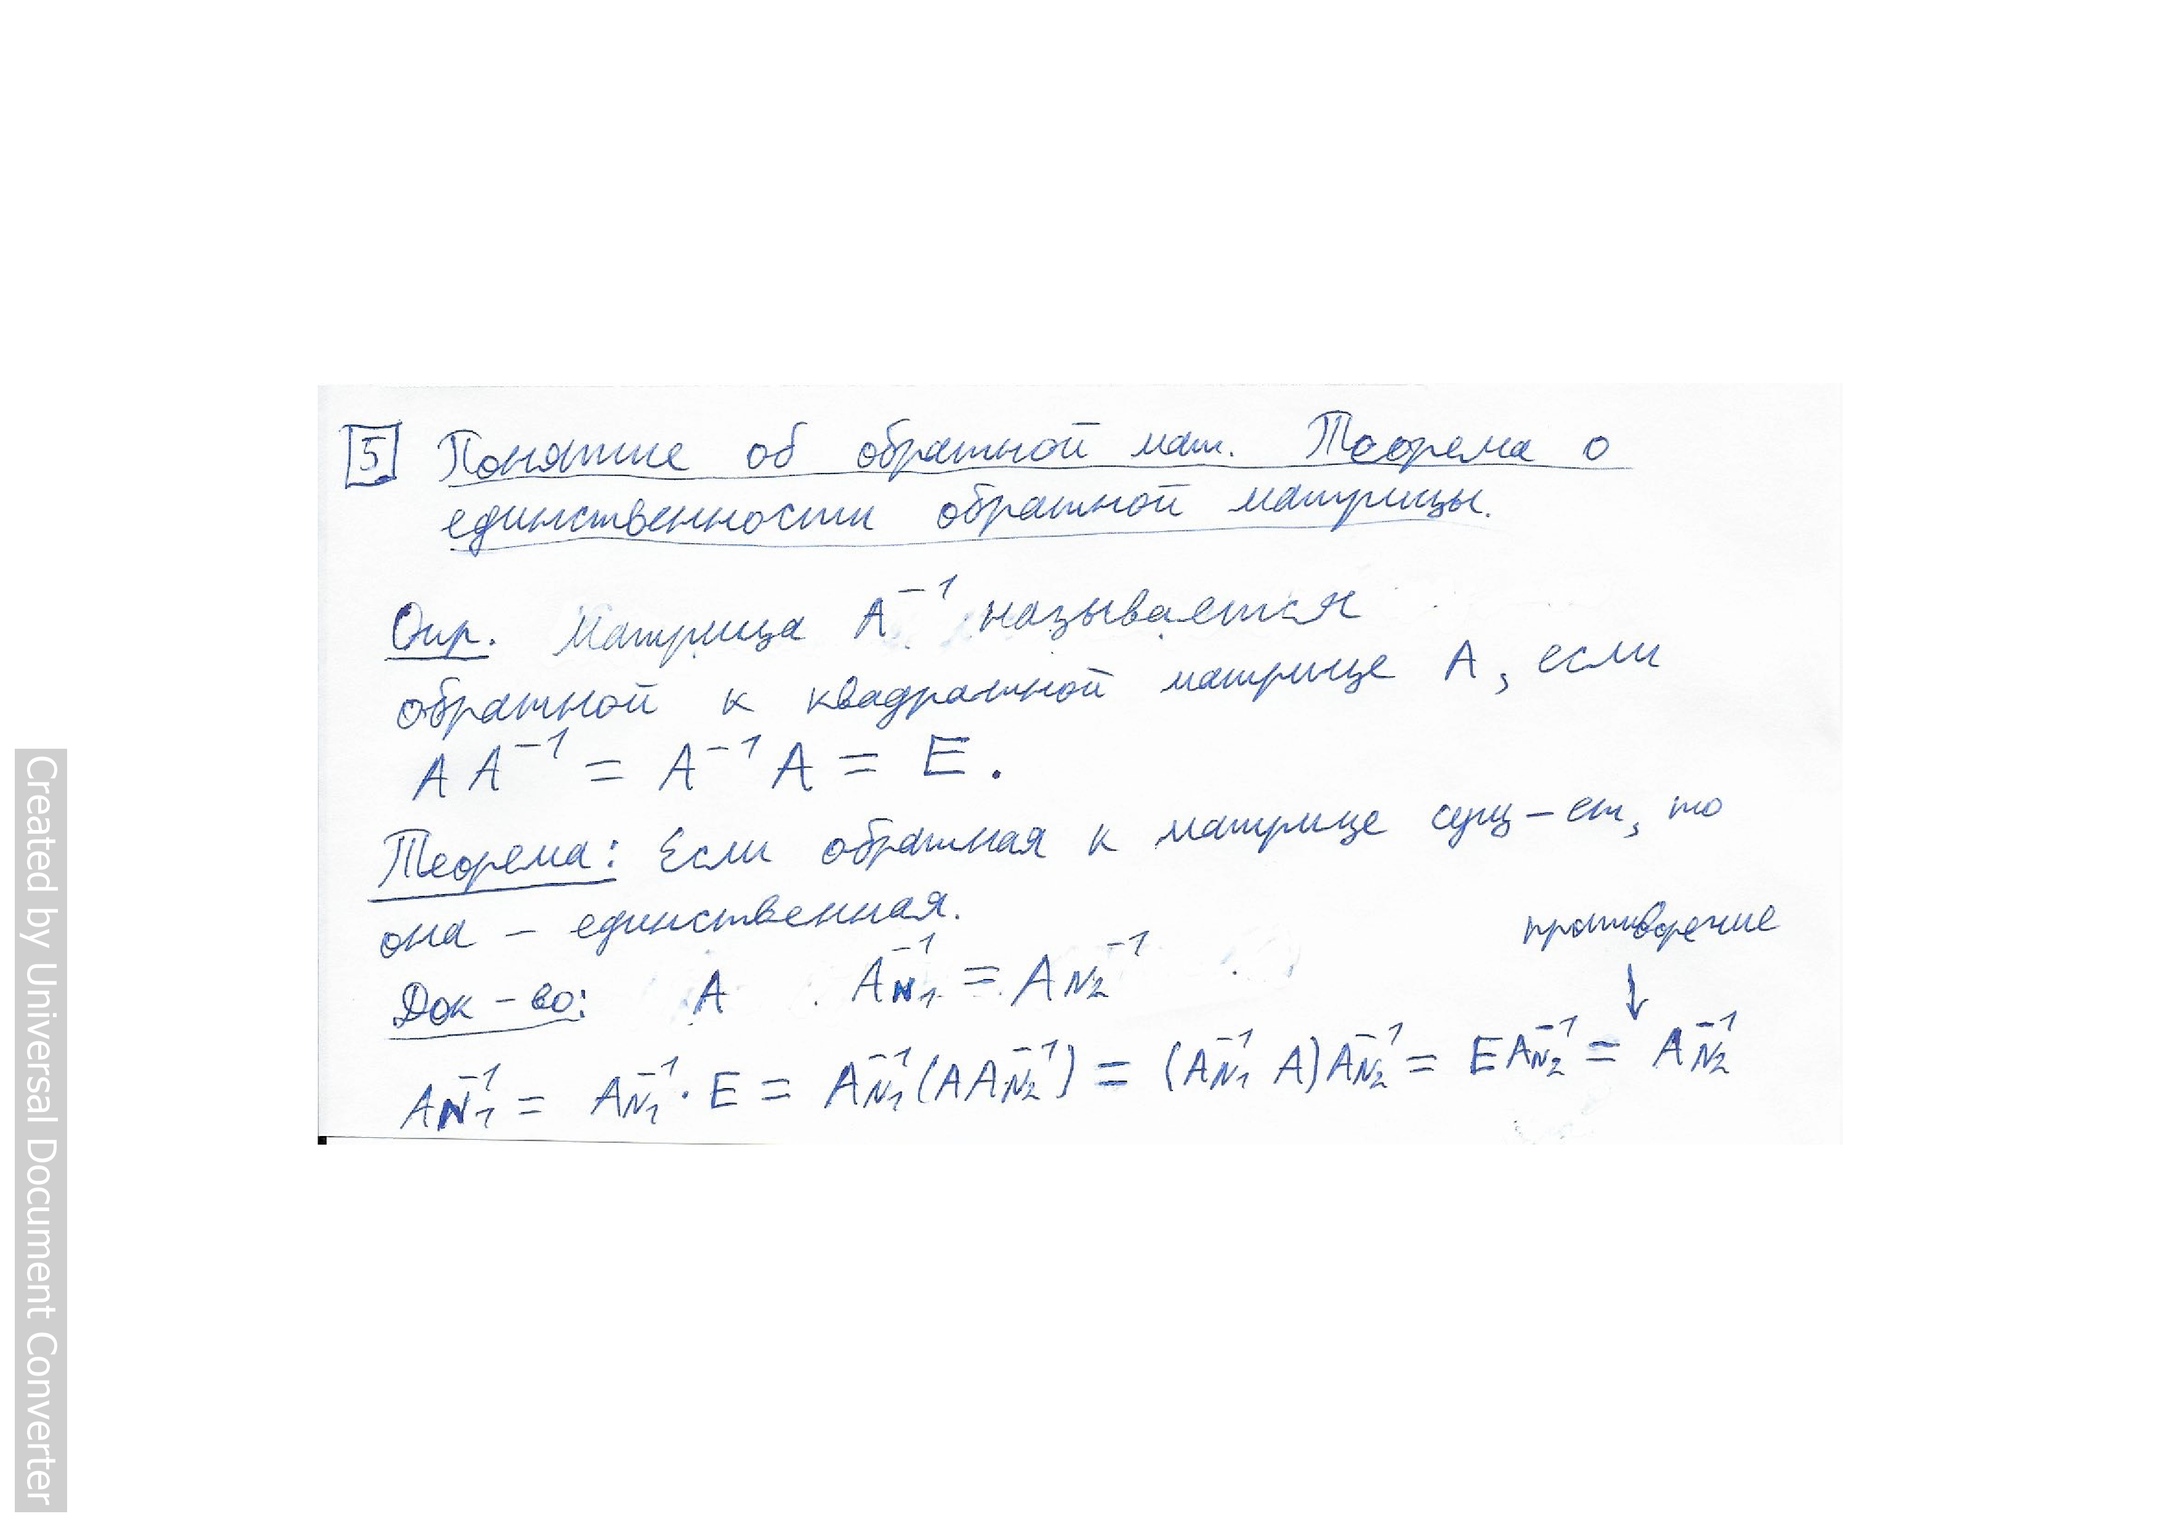 5 Понятие об обратной мат. Теорема о
единственности обратной матрицы.
Опр. Матрица A⁻¹ называется
обратной к квадратной матрице A, если
A A⁻¹ = A⁻¹ A = E.
Теорема: Если обратная к матрице сущ-ет, то
она - единственная.
противоречие
Док-во: A A_N₁⁻¹ = A_N₂⁻¹
↓
A_N₁⁻¹ = A_N₁⁻¹ · E = A_N₁⁻¹ (A A_N₂⁻¹) = (A_N₁⁻¹ A) A_N₂⁻¹ = E A_N₂⁻¹ = A_N₂⁻¹
Created by Universal Document Converter